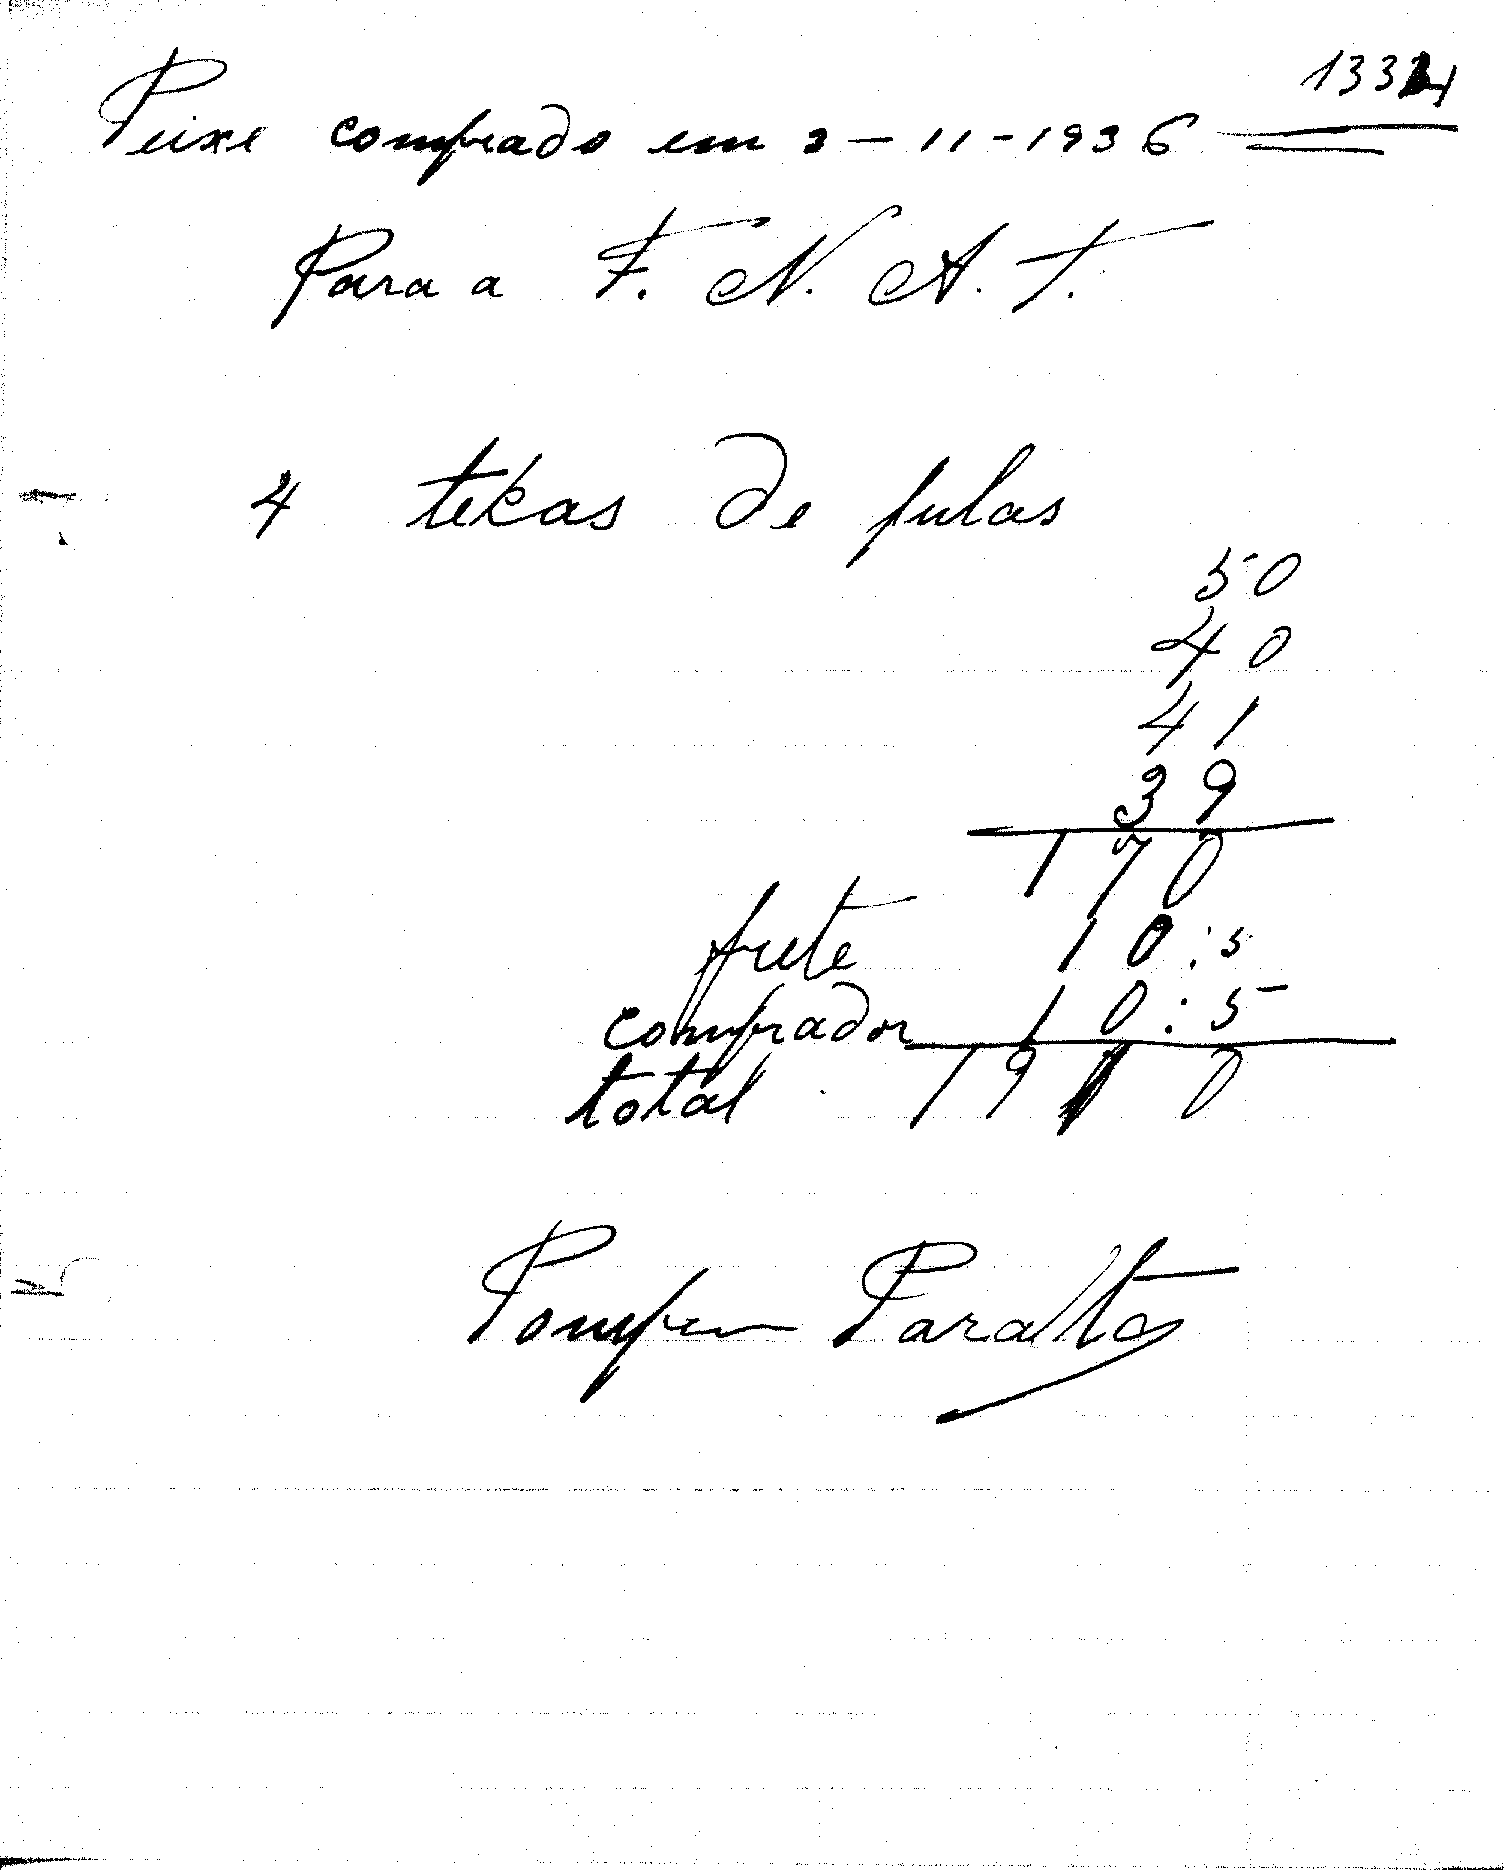 1334
Peixe comprado em 2-11-1936
Para a F. N. A. T.
4 tekas de fulas
50
40
41
39
170
frete 10:5
comprador 10:5
total 191 0
Paralta